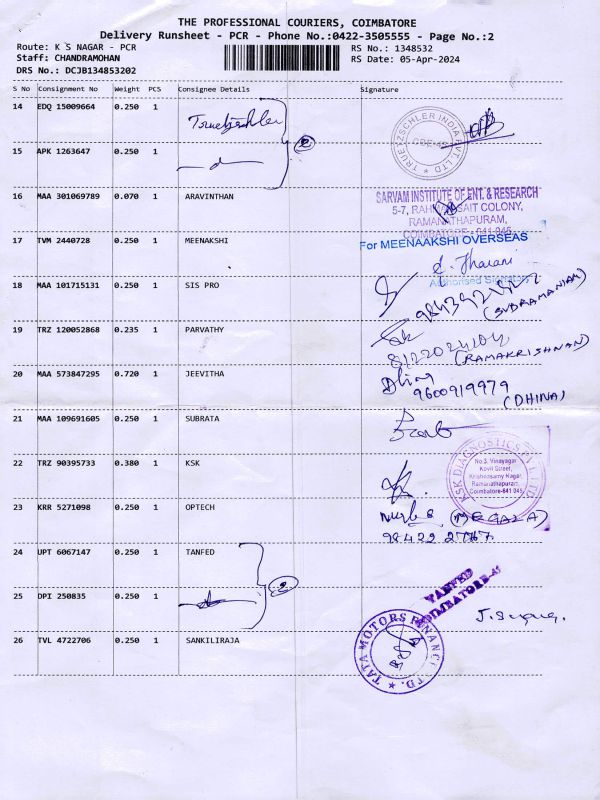 THE PROFESSIONAL COURIERS, COIMBATORE
Delivery Runsheet - PCR - Phone No.:0422-3505555 - Page No.:2
Route: K S NAGAR - PCR RS No.: 1348532
Staff: CHANDRAMOHAN RS Date: 05-Apr-2024
DRS No.: DCJB134853202
S No Consignment No Weight PCS Consignee Details Signature
14 EDQ 15009664 0.250 1 Truetzschler
TRUETZSCHLER INDIA PVT. LTD
15 APK 1263647 0.250 1
2
16 MAA 301069789 0.070 1 ARAVINTHAN
SARVAM INSTITUTE OF ENT. & RESEARCH
5-7, RAHMAN SAIT COLONY,
RAMANATHAPURAM,
COIMBATORE - 641 045
17 TVM 2440728 0.250 1 MEENAKSHI
For MEENAAKSHI OVERSEAS
Authorised Signatory
18 MAA 101715131 0.250 1 SIS PRO
(SUBRAMANIAM)
19 TRZ 120052868 0.235 1 PARVATHY
8122024104
(RAMAKRISHNAN)
20 MAA 573847295 0.720 1 JEEVITHA
9600919979
(DHINA)
21 MAA 109691605 0.250 1 SUBRATA
22 TRZ 90395733 0.380 1 KSK
KSK DIAGNOSTICS PVT LTD
No.3, Vinayagar
Kovil Street,
Krishnasamy Nagar,
Ramanathapuram,
Coimbatore-641 045
23 KRR 5271098 0.250 1 OPTECH
(MEGALA)
98422 27767
24 UPT 6067147 0.250 1 TANFED
TANFED
COIMBATORE-45
25 DPI 250835 0.250 1
2
26 TVL 4722706 0.250 1 SANKILIRAJA
TATA MOTORS FINANCE LTD.